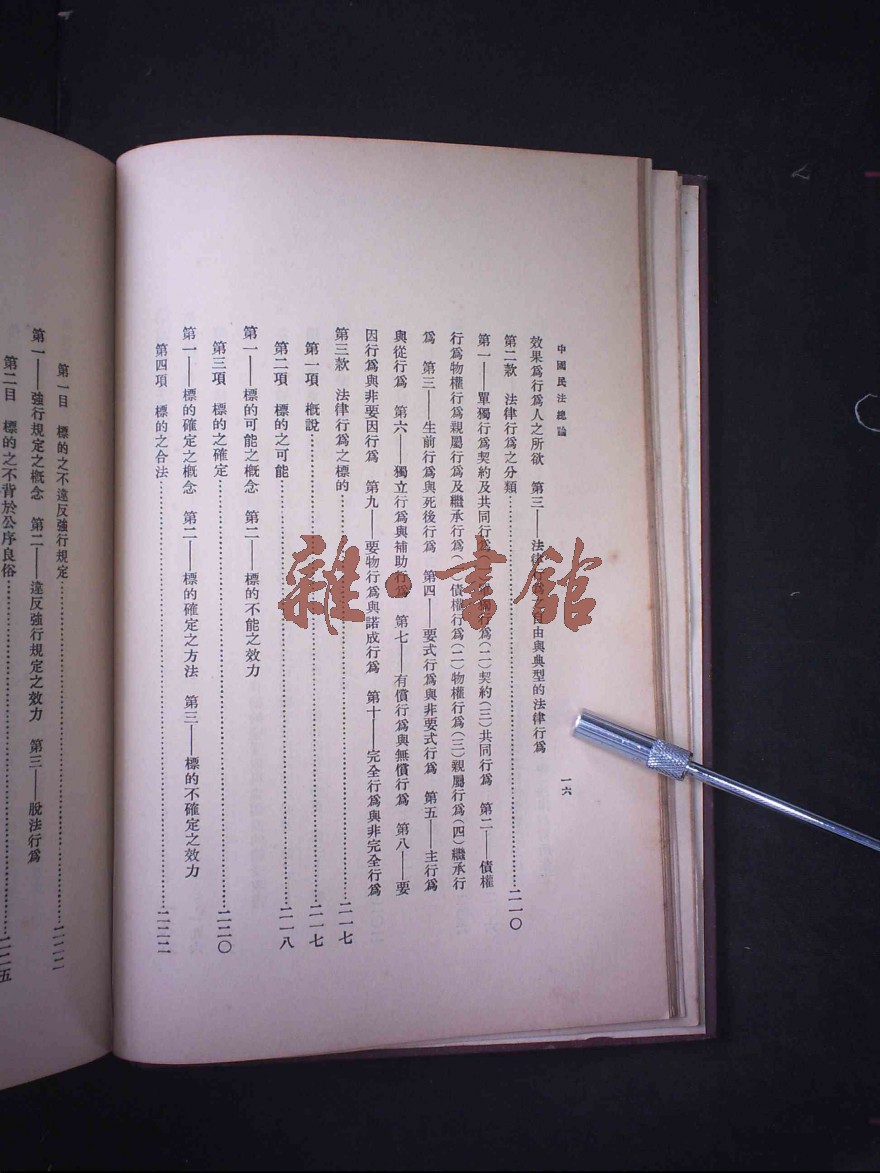 中國民法總論
一六
效果爲行爲人之所欲　第三——法律行爲自由與典型的法律行爲
第二款　法律行爲之分類……二一〇
第一——單獨行爲契約及共同行爲(一)單獨行爲(二)契約(三)共同行爲　第二——債權
行爲物權行爲親屬行爲及繼承行爲(一)債權行爲(二)物權行爲(三)親屬行爲(四)繼承行
爲　第三——生前行爲與死後行爲　第四——要式行爲與非要式行爲　第五——主行爲
與從行爲　第六——獨立行爲與補助行爲　第七——有償行爲與無償行爲　第八——要
因行爲與非要因行爲　第九——要物行爲與諾成行爲　第十——完全行爲與非完全行爲
第三款　法律行爲之標的……二一七
第一項　概說……二一七
第二項　標的之可能……二一八
第一——標的可能之概念　第二——標的不能之效力
第三項　標的之確定……二二〇
第一——標的確定之概念　第二——標的確定之方法　第三——標的不確定之效力
第四項　標的之合法……二二二
第一目　標的之不違反強行規定……二二二
第一——強行規定之概念　第二——違反強行規定之效力　第三——脫法行爲
第二目　標的之不背於公序良俗……二二五
雜·書館